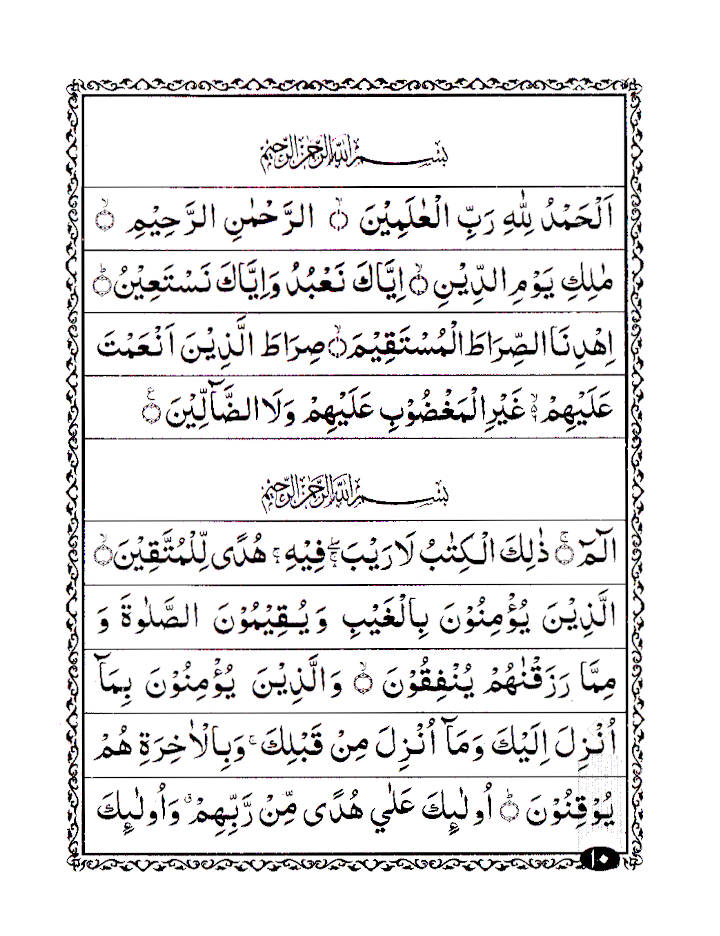 بِسْمِ اللهِ الرَّحْمٰنِ الرَّحِيْمِ
اَلْحَمْدُ لِلّٰهِ رَبِّ الْعٰلَمِيْنَ ۙ الرَّحْمٰنِ الرَّحِيْمِ ۙ
مٰلِكِ يَوْمِ الدِّيْنِ ۙ اِيَّاكَ نَعْبُدُ وَاِيَّاكَ نَسْتَعِيْنُ ؕ
اِهْدِنَا الصِّرَاطَ الْمُسْتَقِيْمَ ۙ صِرَاطَ الَّذِيْنَ اَنْعَمْتَ
عَلَيْهِمْ ۙ۬ غَيْرِ الْمَغْضُوْبِ عَلَيْهِمْ وَلَا الضَّآلِّيْنَ ۧ
بِسْمِ اللهِ الرَّحْمٰنِ الرَّحِيْمِ
الٓمّٓ ۚ ذٰلِكَ الْكِتٰبُ لَا رَيْبَ ۛۖ فِيْهِ ۛۚ هُدًى لِّلْمُتَّقِيْنَ ۙ
الَّذِيْنَ يُؤْمِنُوْنَ بِالْغَيْبِ وَيُقِيْمُوْنَ الصَّلٰوةَ وَ
مِمَّا رَزَقْنٰهُمْ يُنْفِقُوْنَ ۙ وَالَّذِيْنَ يُؤْمِنُوْنَ بِمَآ
اُنْزِلَ اِلَيْكَ وَمَآ اُنْزِلَ مِنْ قَبْلِكَ ۚ وَبِالْاٰخِرَةِ هُمْ
يُوْقِنُوْنَ ؕ اُولٰٓئِكَ عَلٰى هُدًى مِّنْ رَّبِّهِمْ ۗ وَاُولٰٓئِكَ
١٠